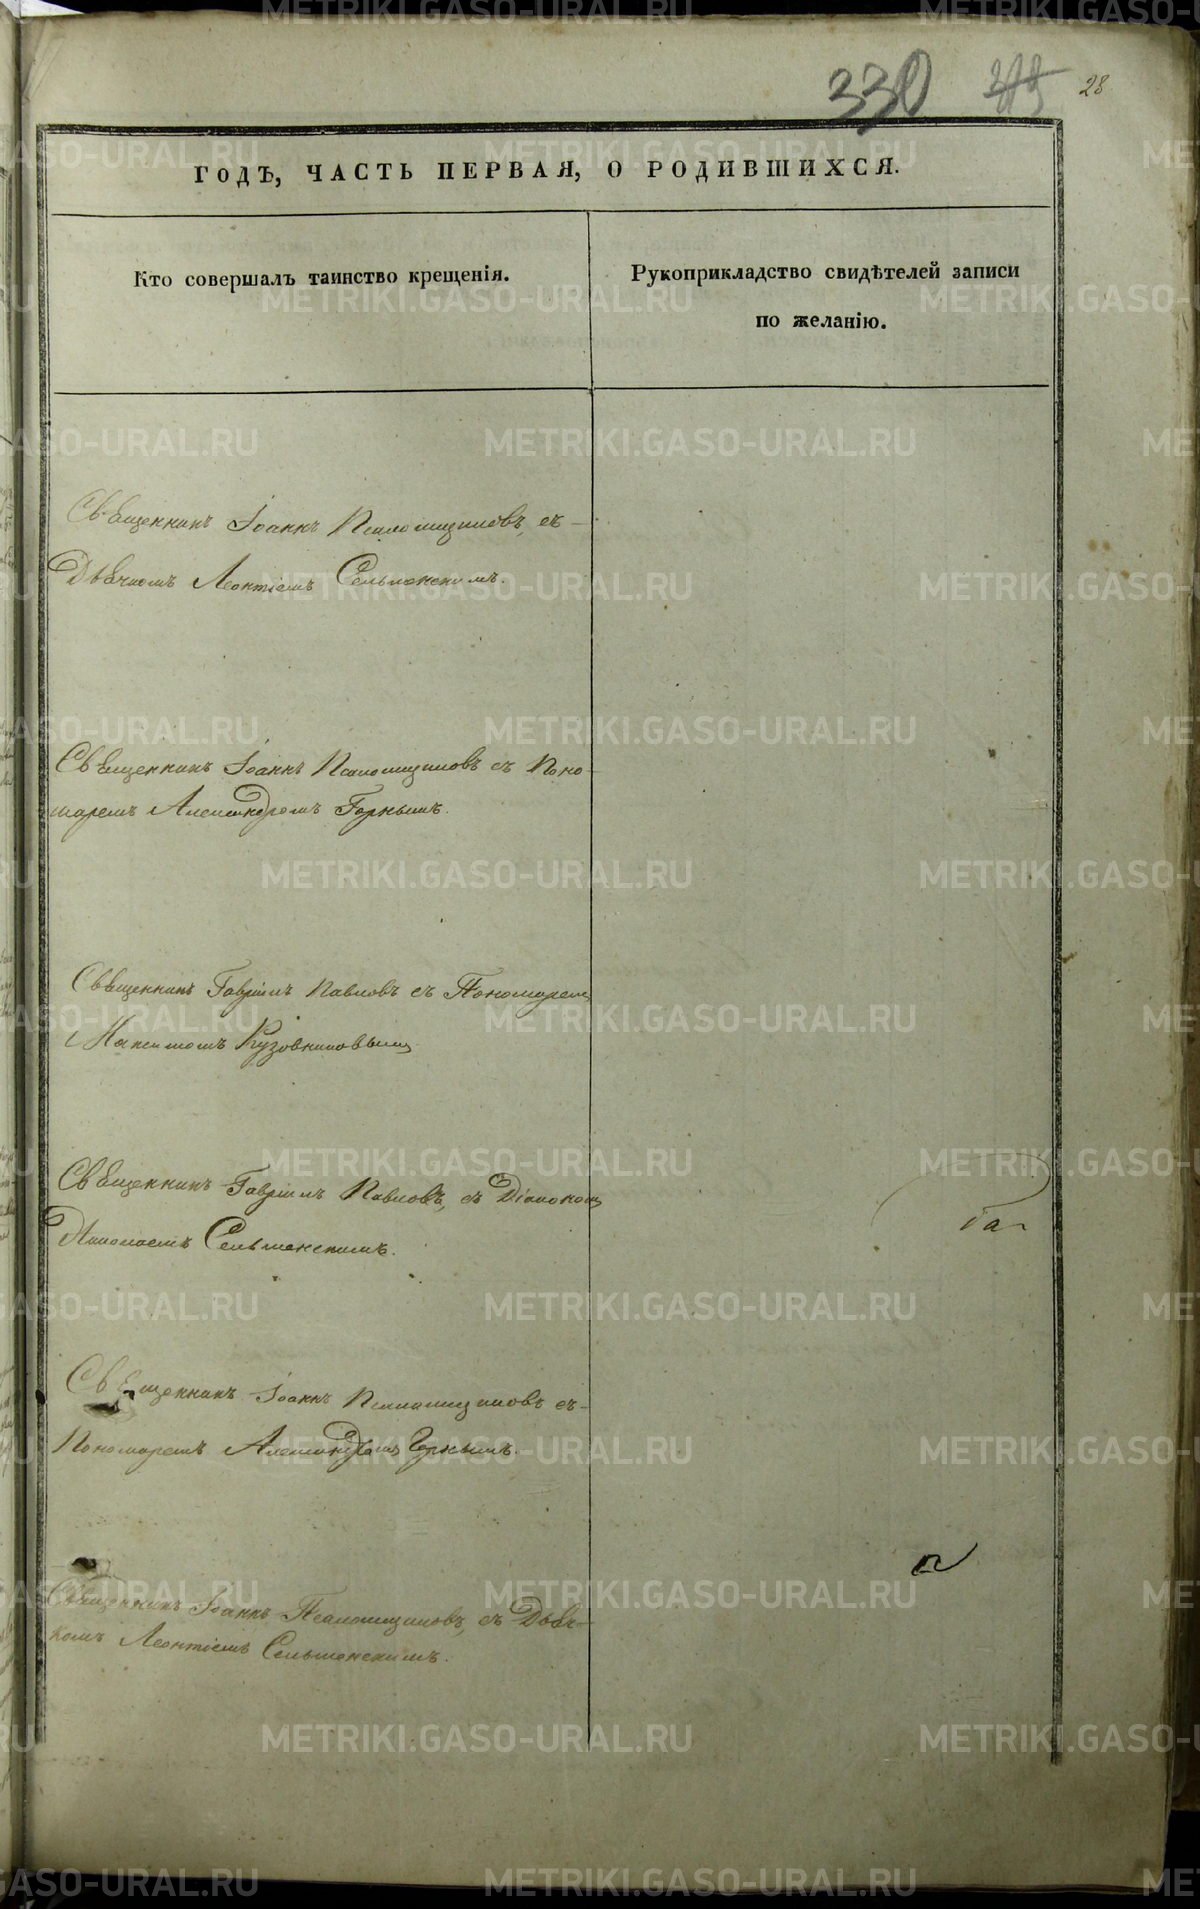 330 375 28
ГОДЪ, ЧАСТЬ ПЕРВАЯ, О РОДИВШИХСЯ.
Кто совершалъ таинство крещенія.
Рукоприкладство свидѣтелей записи
по желанію.
Священникъ Іоаннъ Псаломщиковъ, съ
Дьячкомъ Леонтіемъ Сельменскимъ.
Священникъ Іоаннъ Псаломщиковъ съ Поно-
маремъ Александромъ Горнымъ.
Священникъ Гавріилъ Павловъ съ Пономаремъ
Максимомъ Кузовниковымъ
Священникъ Гавріилъ Павловъ, съ Діакономъ
Сельменскимъ.
Священникъ Іоаннъ Псаломщиковъ съ
Пономаремъ Александромъ Горнымъ.
Священникъ Іоаннъ Псаломщиковъ, съ Дьяч-
комъ Леонтіемъ Сельменскимъ.
METRIKI.GASO-URAL.RU